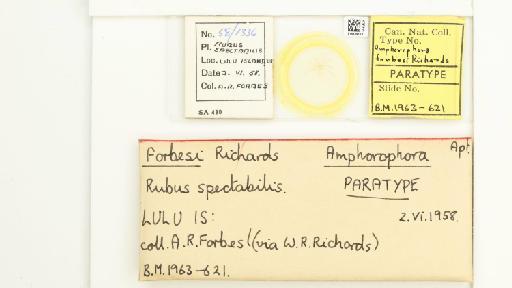 No. 58/1336
Pl. RUBUS
SPECTABILIS
Loc. LULU ISLAND
Date 2. VI. 58.
Col. A.R. FORBES
SA 410
Can. Nat. Coll.
Type No.
Amphorophora
forbesi Richards
PARATYPE
Slide No.
B.M.1963-621
Forbesi Richards Amphorophora Apt.
Rubus spectabilis. PARATYPE
LULU IS: 2.VI.1958.
coll. A.R.Forbes (via W.R.Richards)
B.M.1963-621.